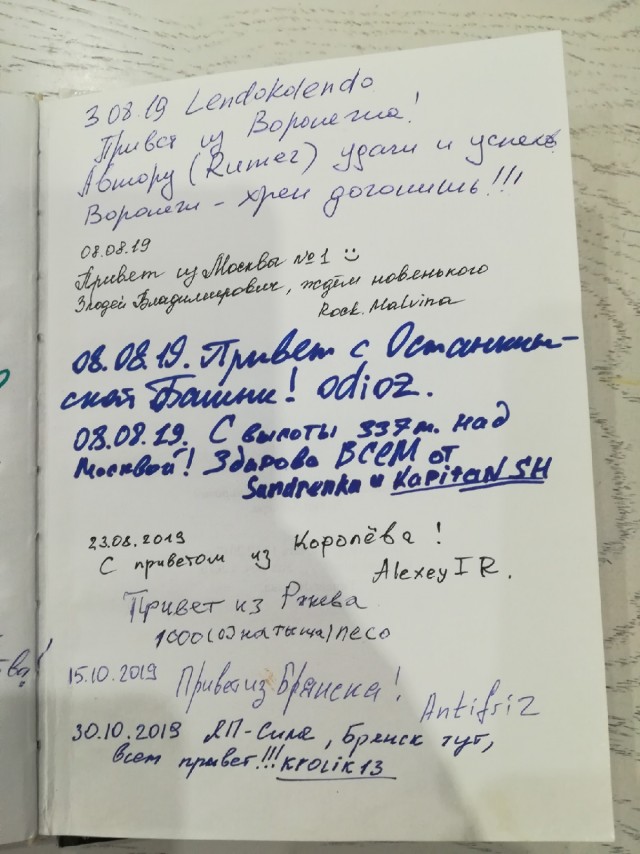 3.08.19 Lendokolendo
Привет из Воронежа!
Автору (Rumez) удачи и успехов.
Воронеж - хрен догонишь!!!
08.08.19
Привет из Москвы №1
Злодей Владимирович, ждём новенького
Rock. Malvina
08.08.19. Привет с Останкин-
ской Башни! odioz.
08.08.19. С высоты 337м. над
Москвой! Здарова ВСЕМ от
Sandrenka и KapitaN SH
23.08.2019
С приветом из Королёва!
AlexeyIR.
Привет из Ржева
1000(однатыща)песо
тва!
15.10.2019 Привет из Брянска!
Antifriz
30.10.2019 ЯП-Сила, Брянск тут,
всем привет!!! krolik13